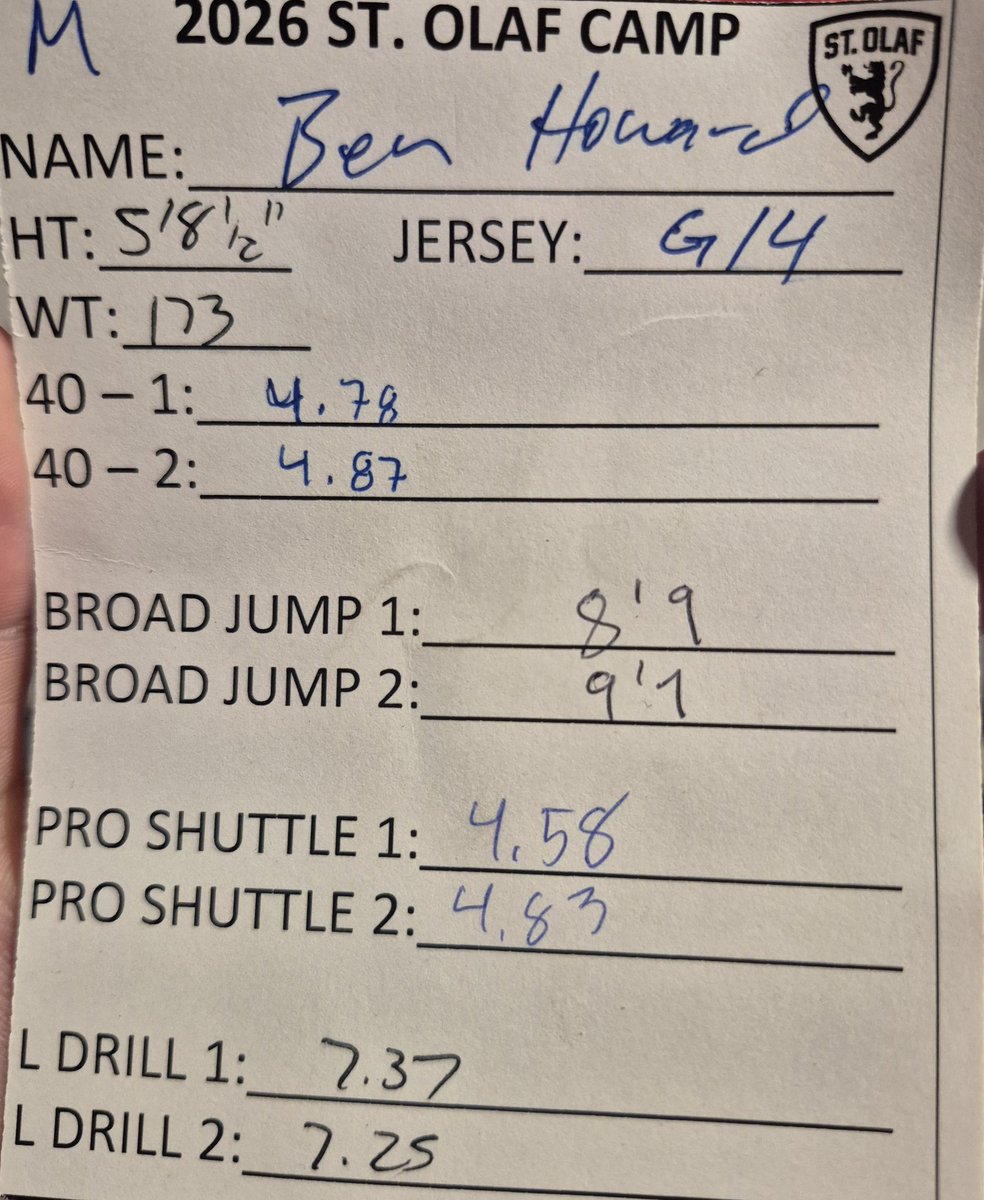 M 2026 ST. OLAF CAMP
ST. OLAF
NAME: Ben Howard
HT: 5'8 1/2" JERSEY: G14
WT: 173
40 – 1: 4.78
40 – 2: 4.87
BROAD JUMP 1: 8'9
BROAD JUMP 2: 9'1
PRO SHUTTLE 1: 4.58
PRO SHUTTLE 2: 4.83
L DRILL 1: 7.37
L DRILL 2: 7.25